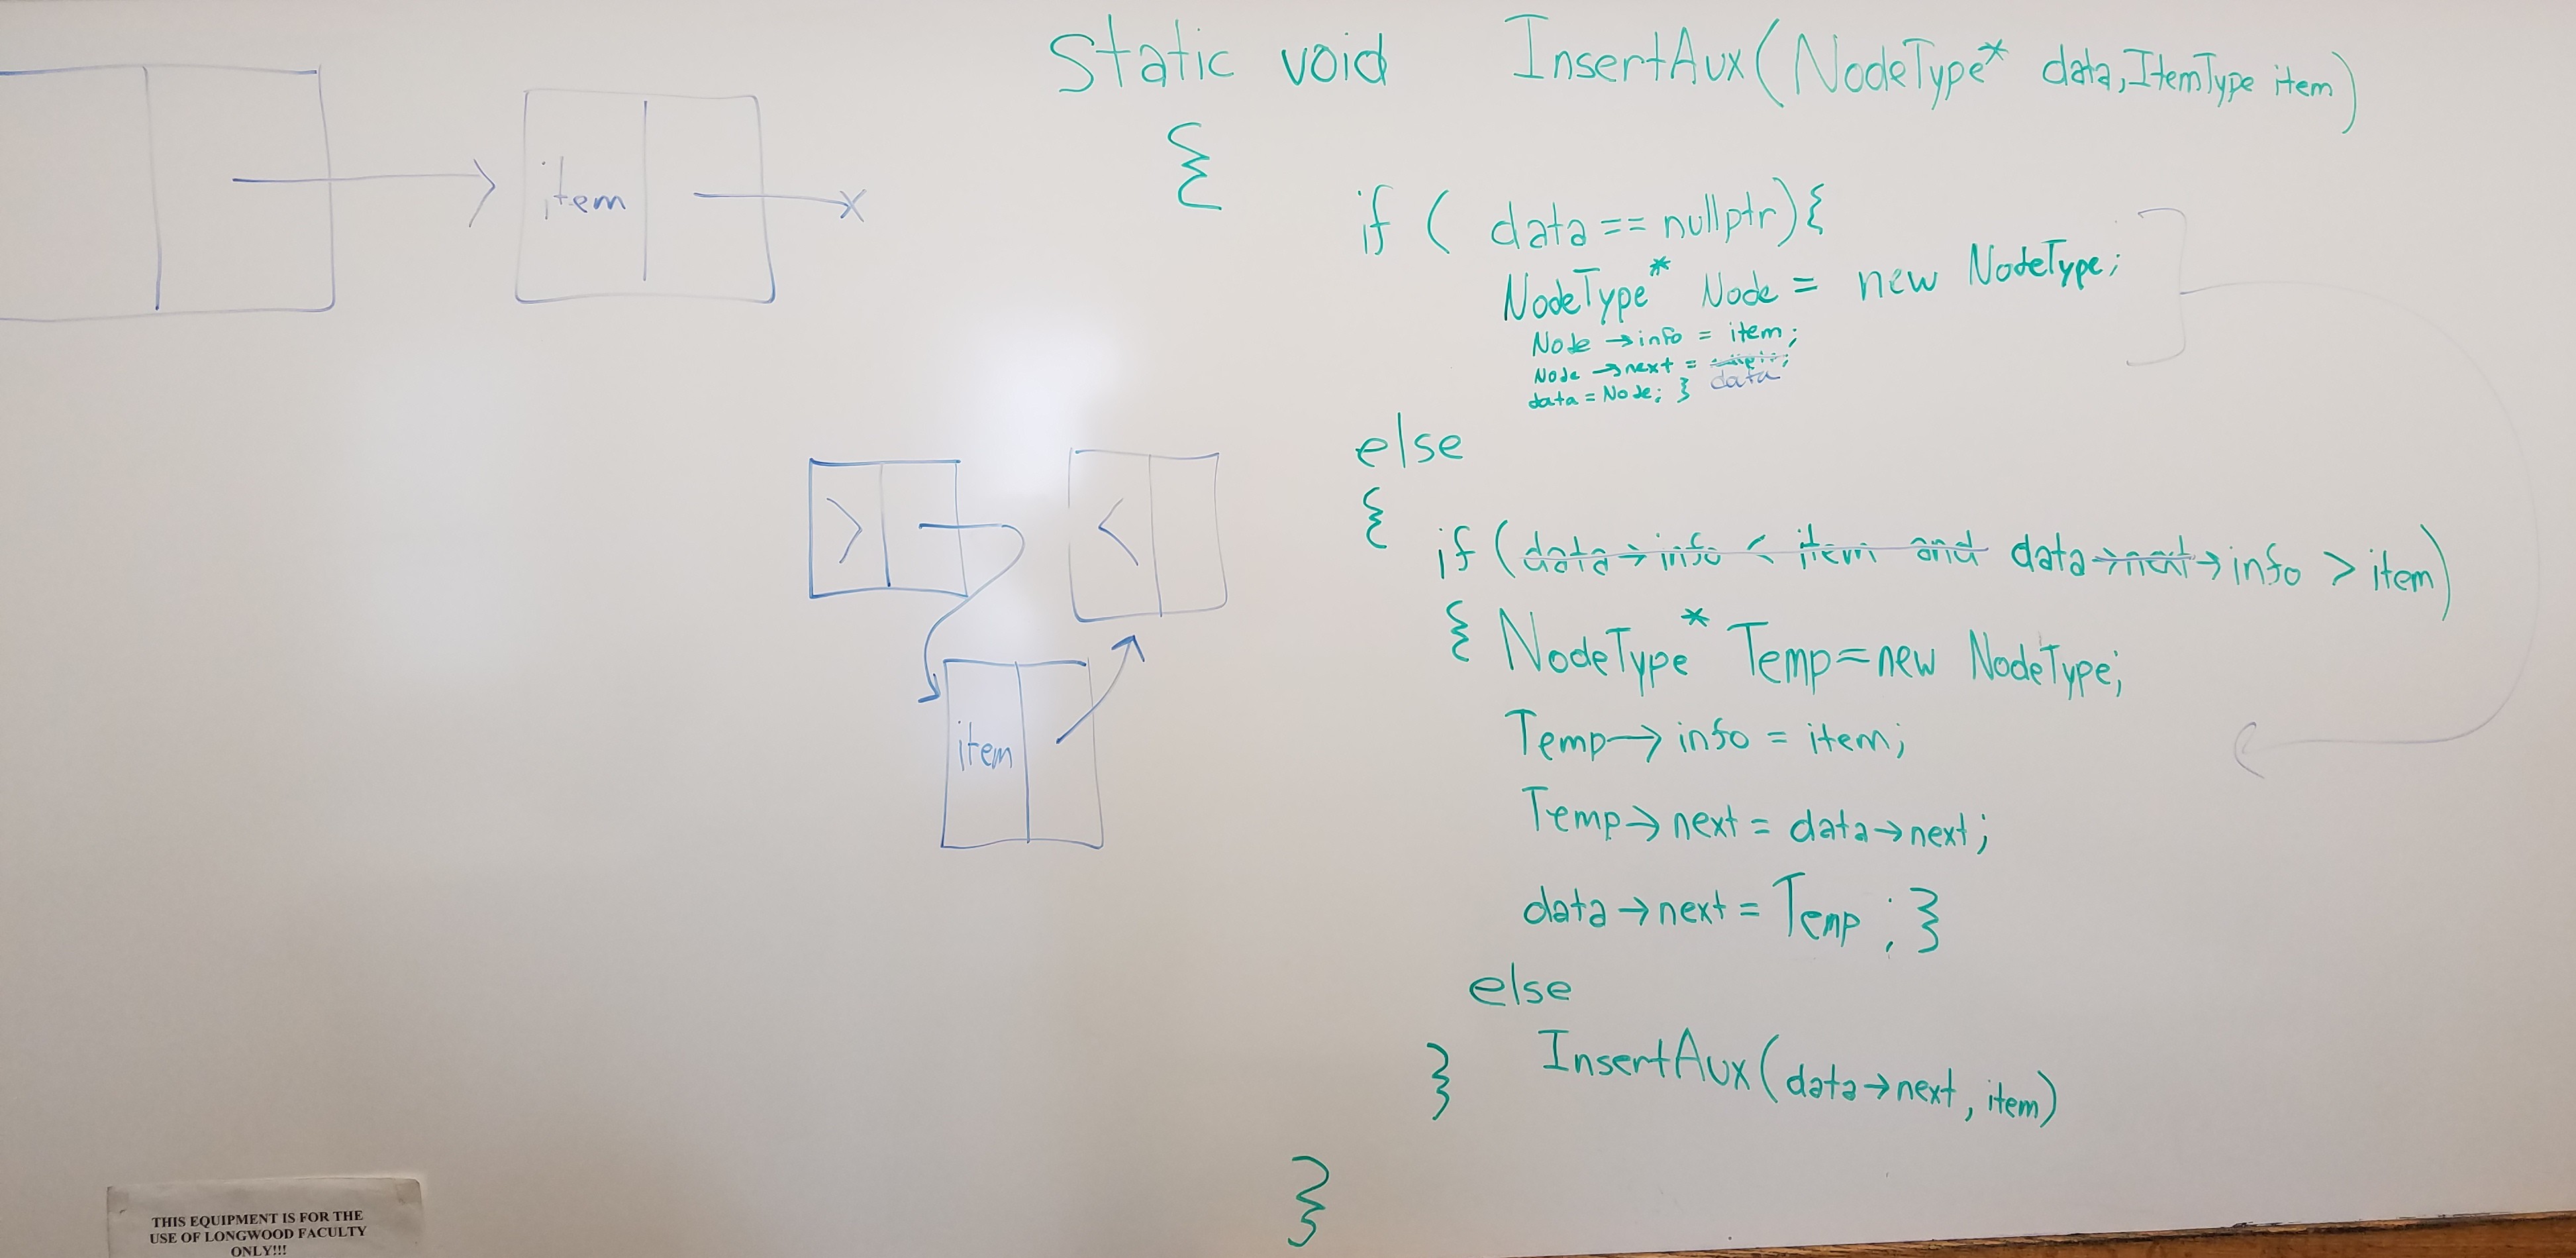 Static void InsertAux(NodeType* data, ItemType item)
{
if ( data == nullptr){
NodeType* Node = new NodeType;
Node →info = item;
Node →next =
data
data = Node; }
else
{
if (data→info < item and data→next→info > item)
{ NodeType* Temp=new NodeType;
Temp→ info = item;
Temp→ next = data→next;
data→next = Temp ; }
else
InsertAux(data→next, item)
}
}
item
x
>
<
item
THIS EQUIPMENT IS FOR THE
USE OF LONGWOOD FACULTY
ONLY!!!